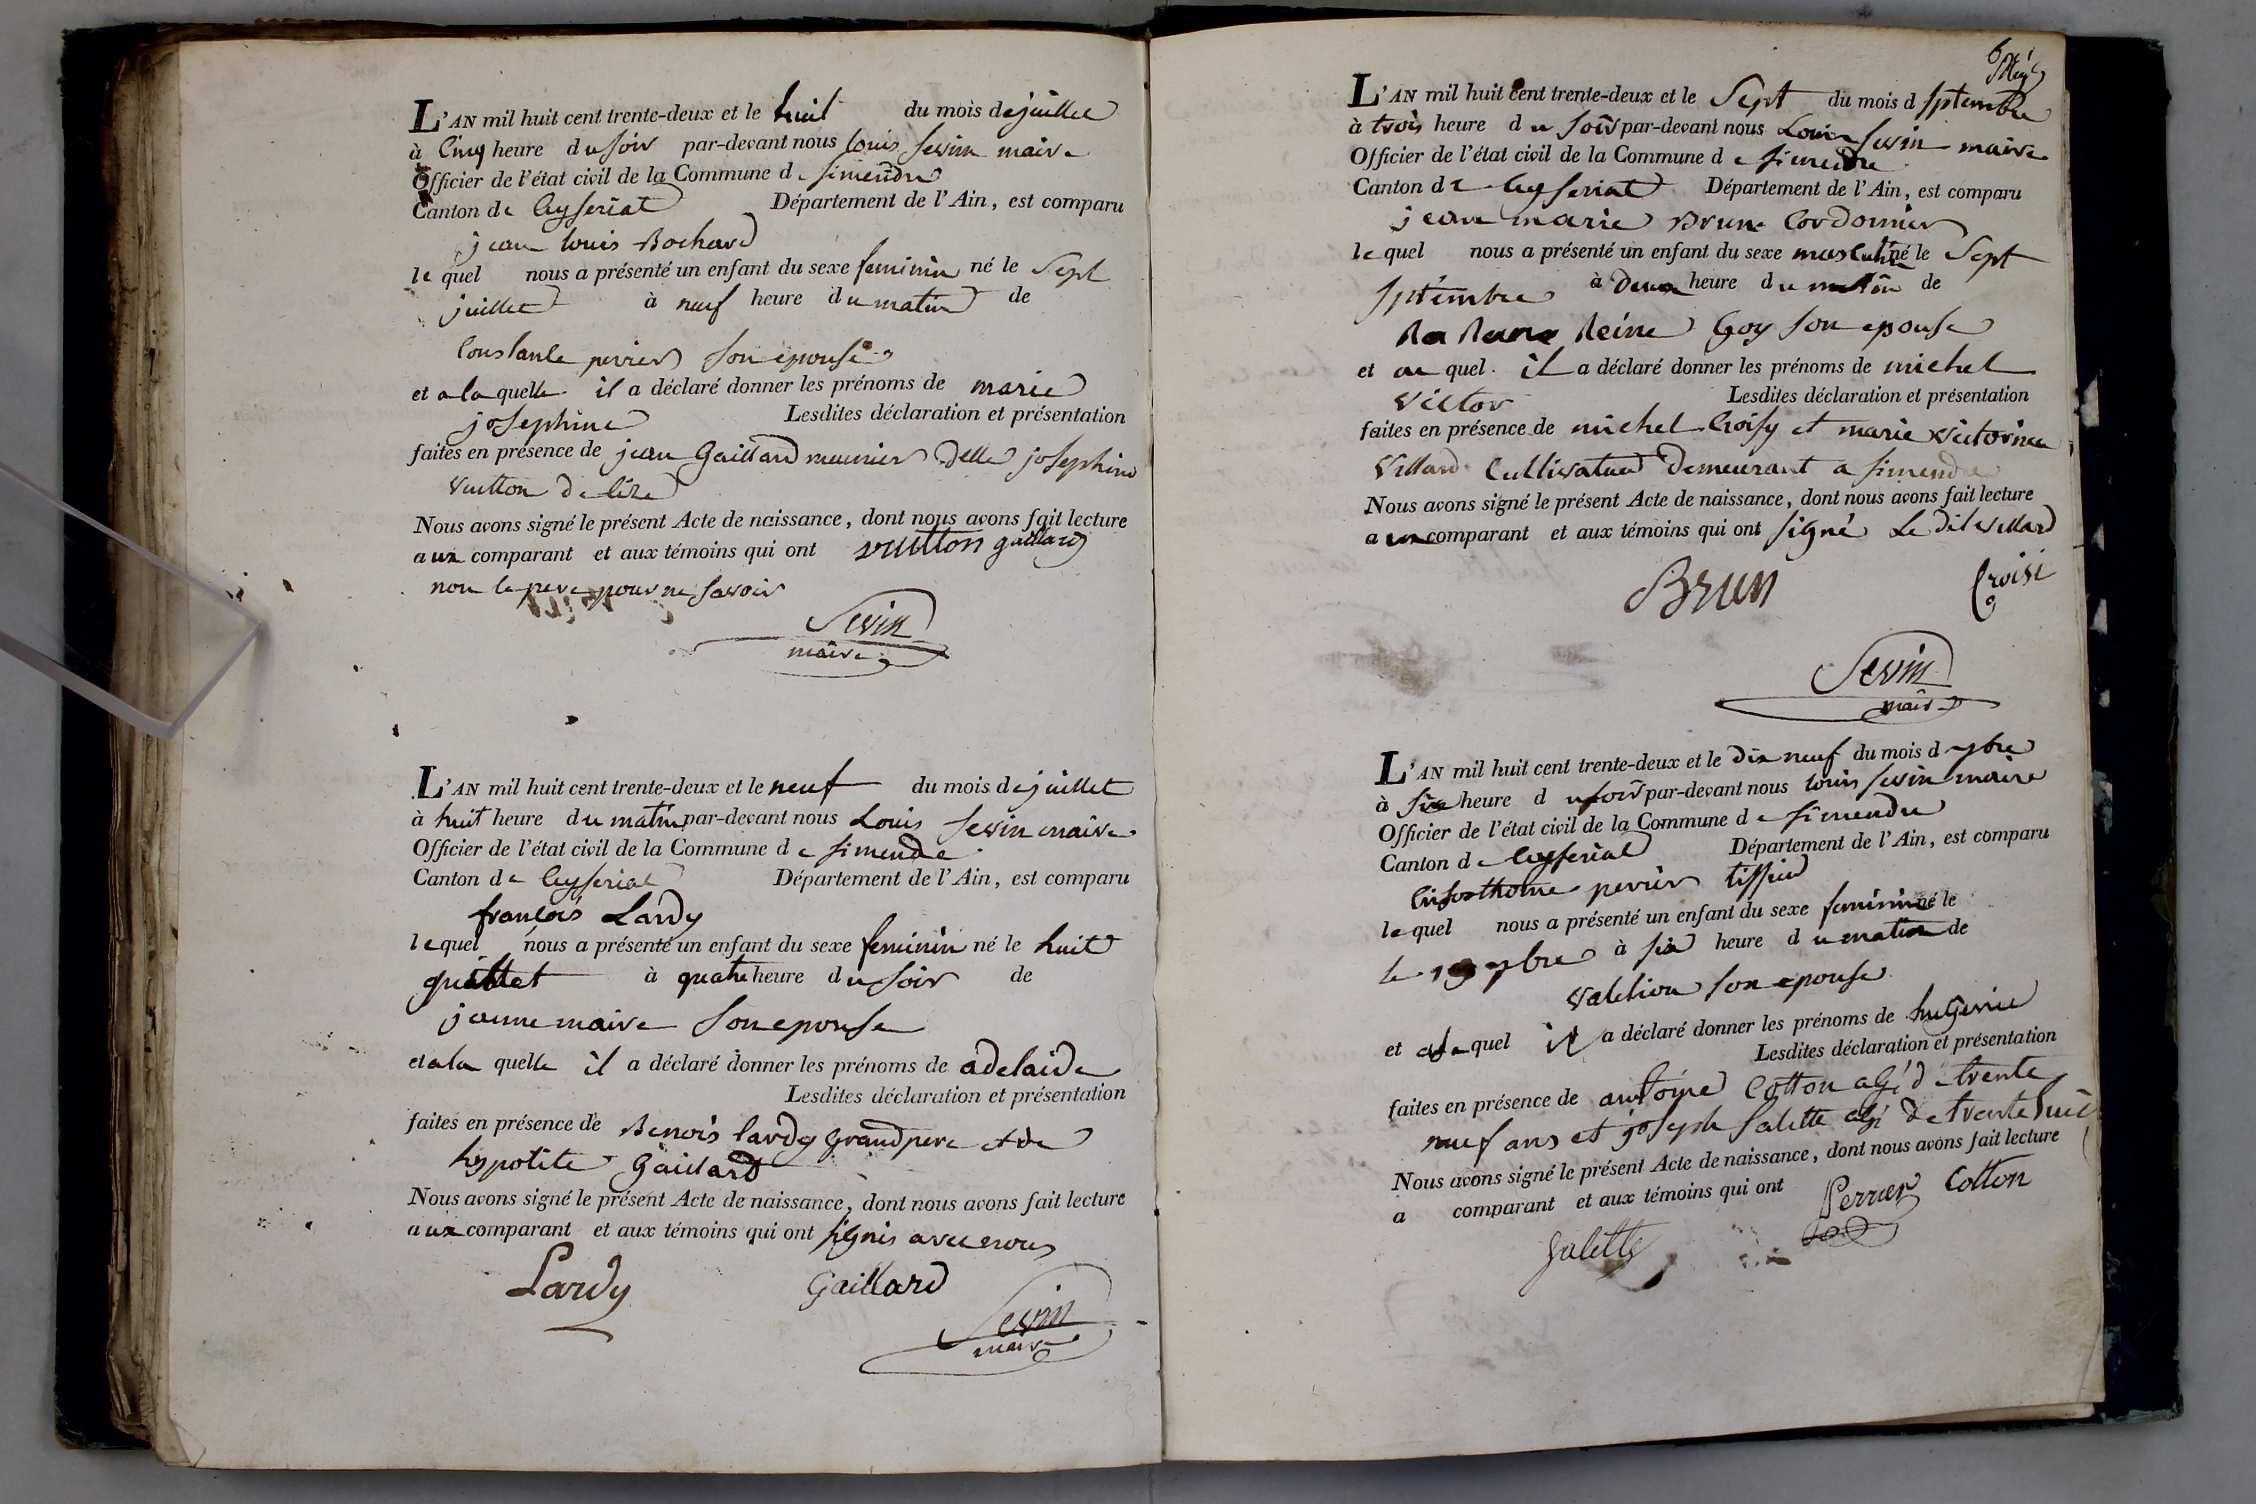 L'AN mil huit cent trente-deux et le huit du mois de juillet
à Cinq heure du soir par-devant nous louis sevin maire
Officier de l'état civil de la Commune de simendre
Canton de Ceyseriat Département de l'Ain, est comparu
jean louis Bochard
le quel nous a présenté un enfant du sexe feminin né le Sept
juillet à neuf heure du matin de
Constante perrier son epouse
et a la quelle il a déclaré donner les prénoms de marie
josephine Lesdites déclaration et présentation
faites en présence de jean Gaillard meunier Delle josephine
vuitton De
Nous avons signé le présent Acte de naissance, dont nous avons fait lecture
aux comparant et aux témoins qui ont vuitton gaillard
non le pere pour ne savoir
Sevin
maire
L'AN mil huit cent trente-deux et le neuf du mois de juillet
à huit heure du matin par-devant nous Louis sevin maire
Officier de l'état civil de la Commune de simendre
Canton de Ceyseriat Département de l'Ain, est comparu
françois Lardy
le quel nous a présenté un enfant du sexe feminin né le huit
à quatre heure du soir de
jeanne maire son epouse
et a la quelle il a déclaré donner les prénoms de adelaide
Lesdites déclaration et présentation
faites en présence de Benois lardy grand pere et de
hypolite Gaillard
Nous avons signé le présent Acte de naissance, dont nous avons fait lecture
aux comparant et aux témoins qui ont signés avec nous
Lardy Gaillard
Sevin
maire
L'AN mil huit cent trente-deux et le Sept du mois d septembre
à trois heure du soir par-devant nous Louis sevin maire
Officier de l'état civil de la Commune de simendre
Canton de Ceyseriat Département de l'Ain, est comparu
jean marie Brun Cordonnier
le quel nous a présenté un enfant du sexe masculin né le Sept
septembre à Deux heure du matin de
Reine Goy son epouse
et au quel il a déclaré donner les prénoms de michel
victor Lesdites déclaration et présentation
faites en présence de michel Croisy et marie victorine
villard Cultivateur Demeurant a simendre
Nous avons signé le présent Acte de naissance, dont nous avons fait lecture
aux comparant et aux témoins qui ont signé Le dit villard
Brun Croisi
Sevin
maire
L'AN mil huit cent trente-deux et le Dix neuf du mois d 7bre
à six heure du soir par-devant nous louis sevin maire
Officier de l'état civil de la Commune de simendre
Canton de Ceyseriat Département de l'Ain, est comparu
Crisosthome perrier
le quel nous a présenté un enfant du sexe feminin né le
le 19 7bre à six heure du matin de
son epouse
et a la quel il a déclaré donner les prénoms de hugenie
Lesdites déclaration et présentation
faites en présence de antoine Cotton agé de trente
neuf ans et joseph Salette agé de trente huit
Nous avons signé le présent Acte de naissance, dont nous avons fait lecture
a comparant et aux témoins qui ont Perrier Cotton
Salette